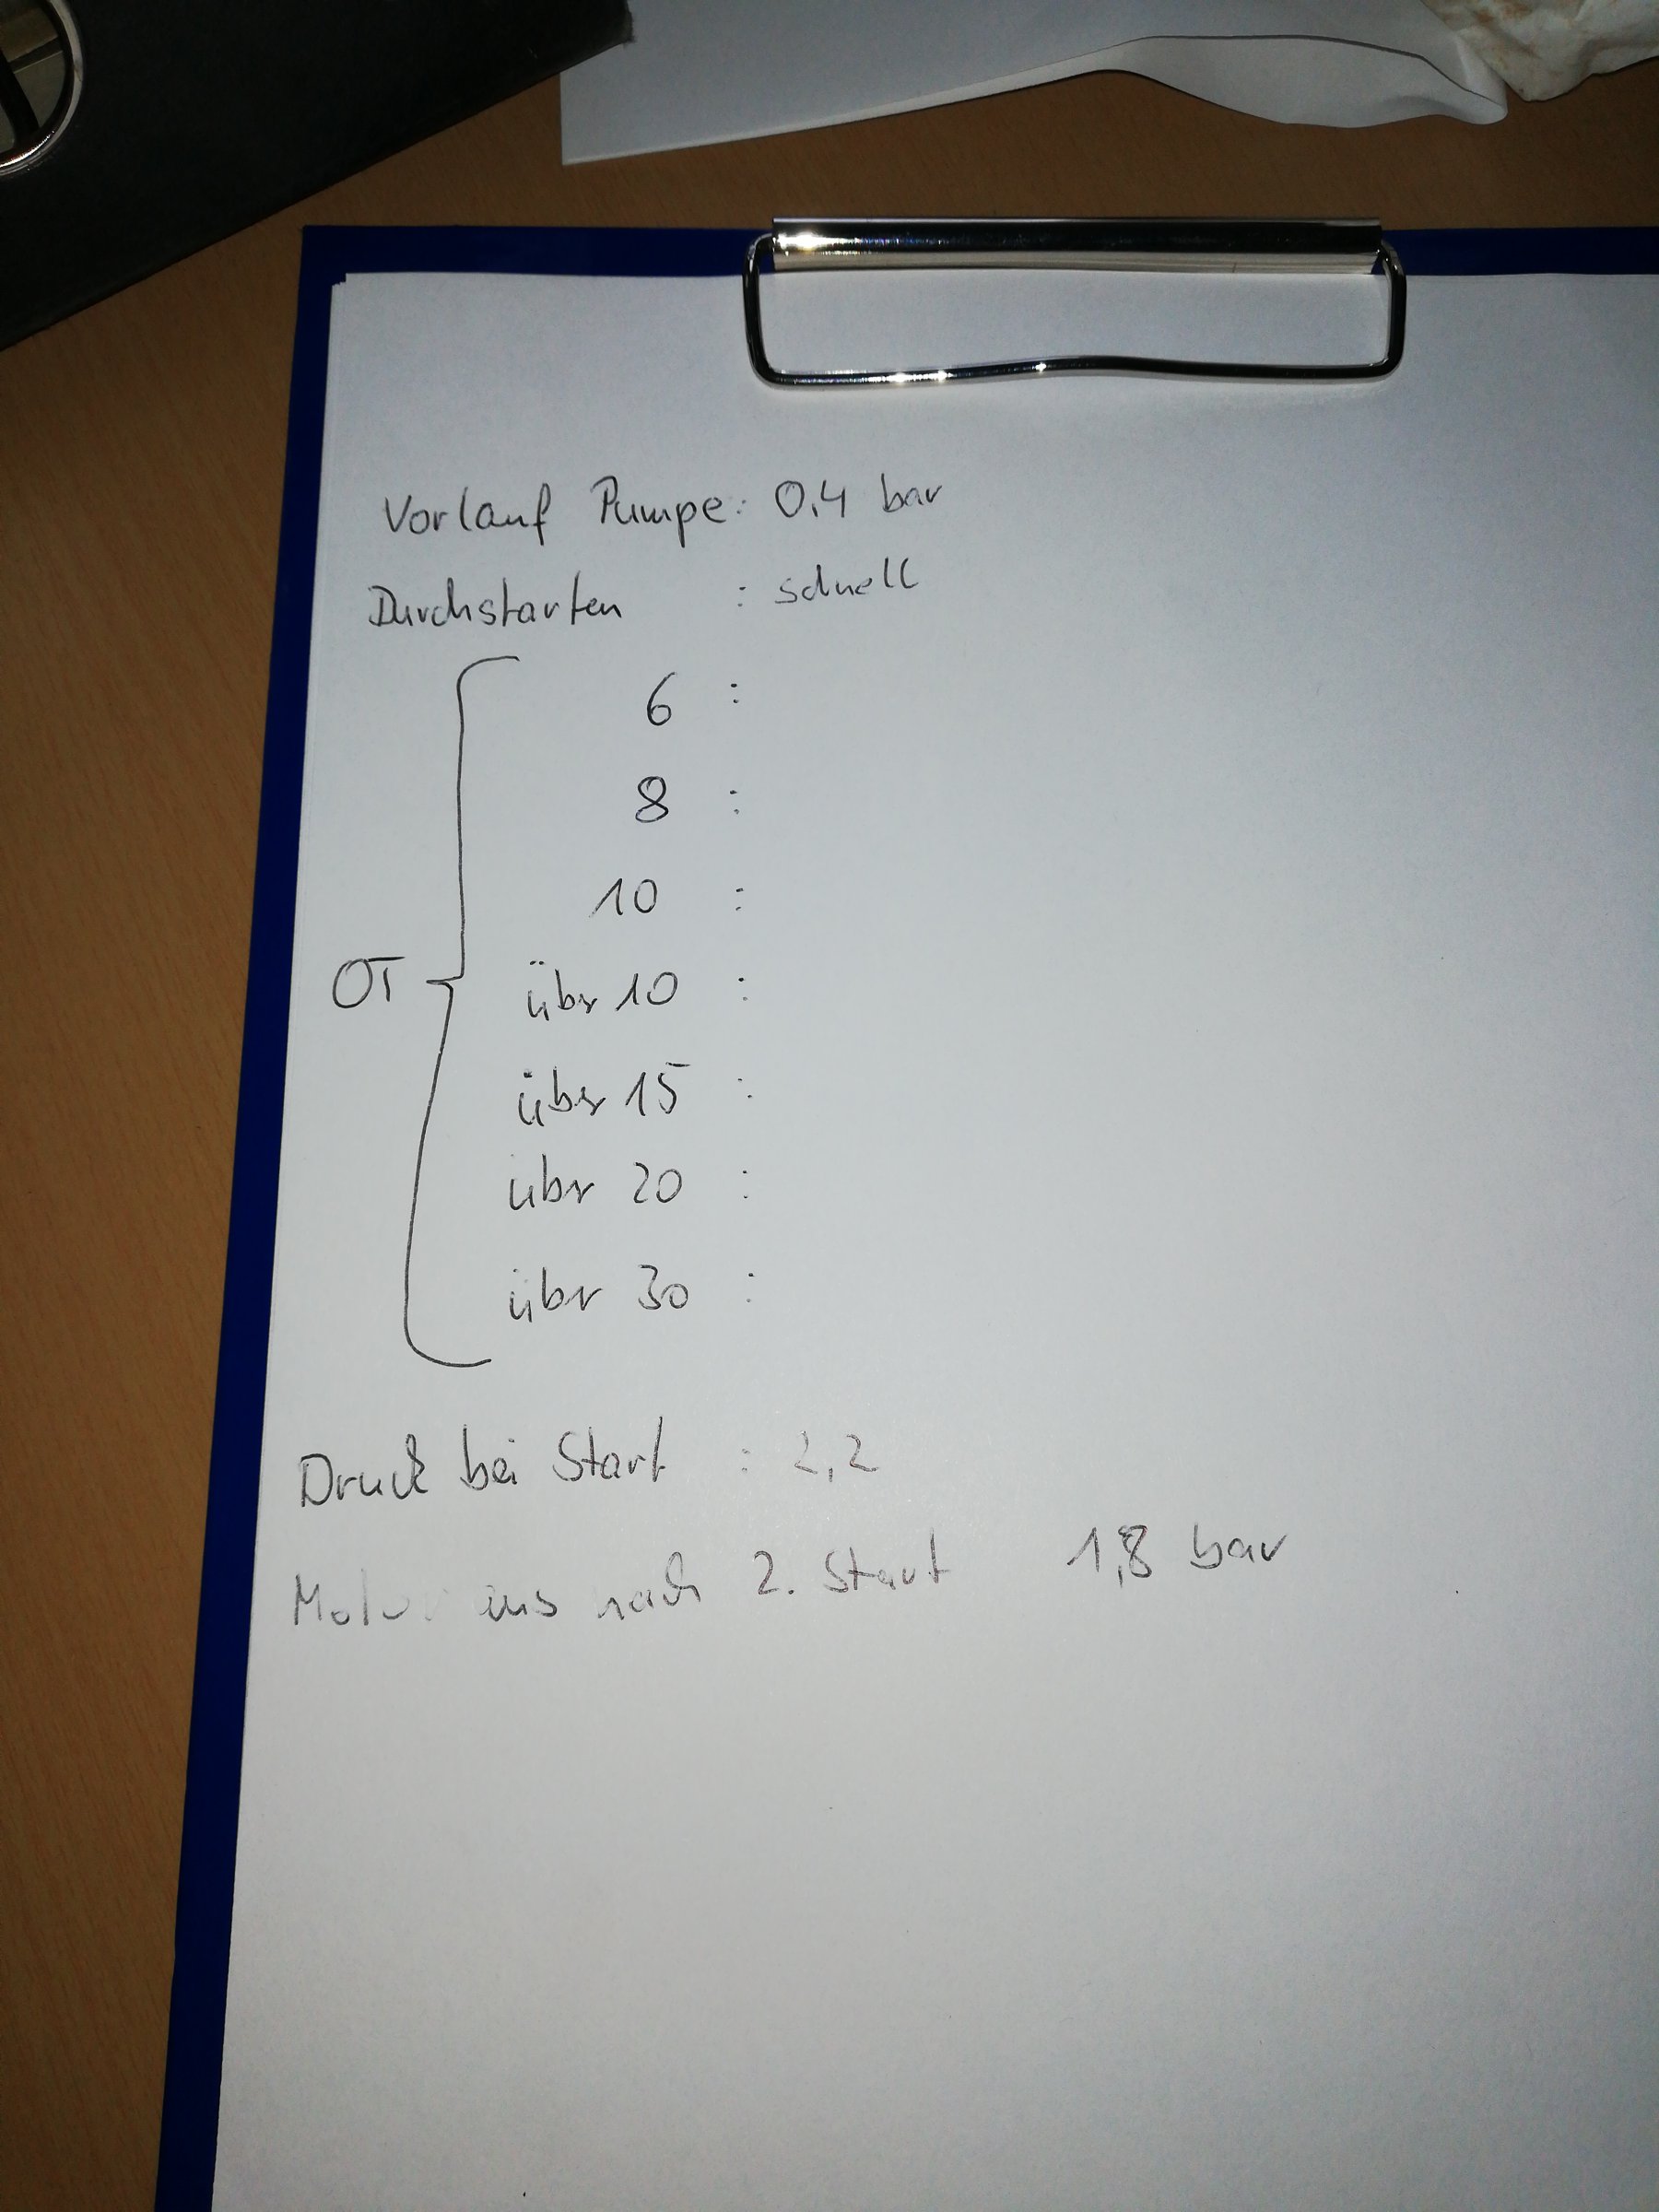 Vorlauf Pumpe: 0,4 bar
Durchstarten : schnell
6 :
8 :
10 :
OT
über 10 :
über 15 :
über 20 :
über 30 :
Druck bei Start : 2,2
Motor aus nach 2. Start 1,8 bar